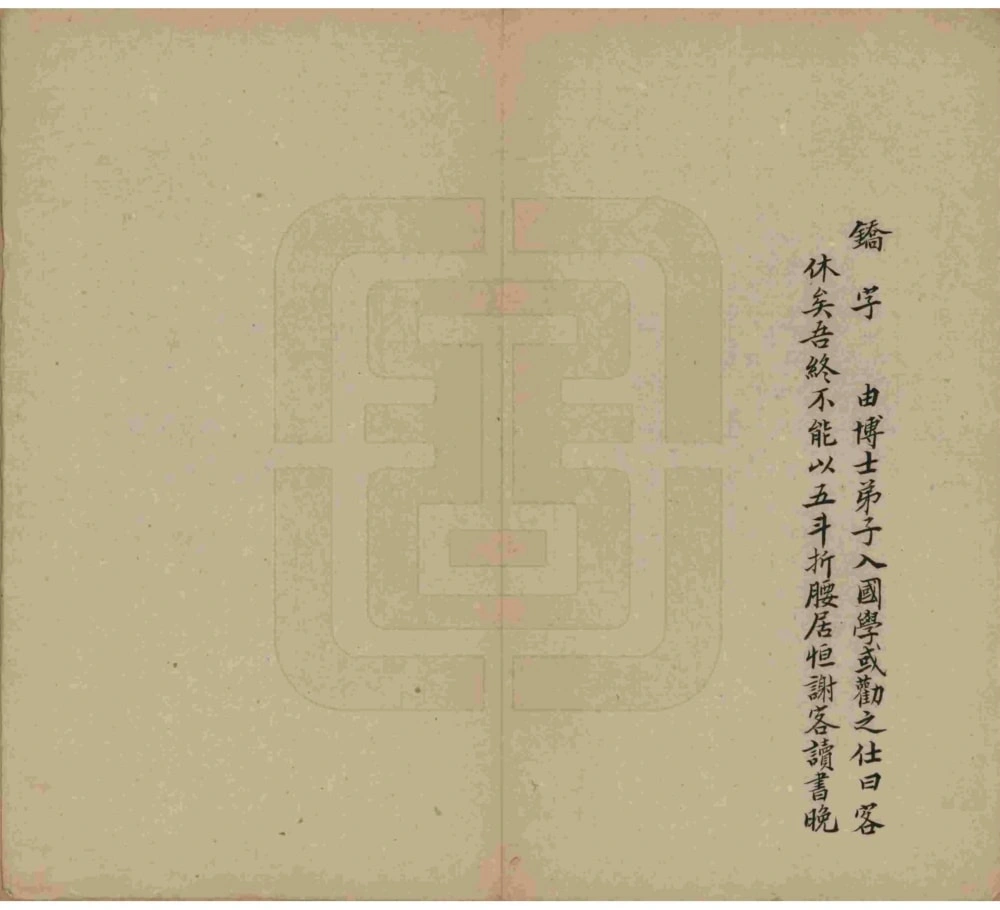 鐈 字 由博士弟子入國學或勸之仕曰客
休矣吾終不能以五斗折腰居恒謝客讀書晚